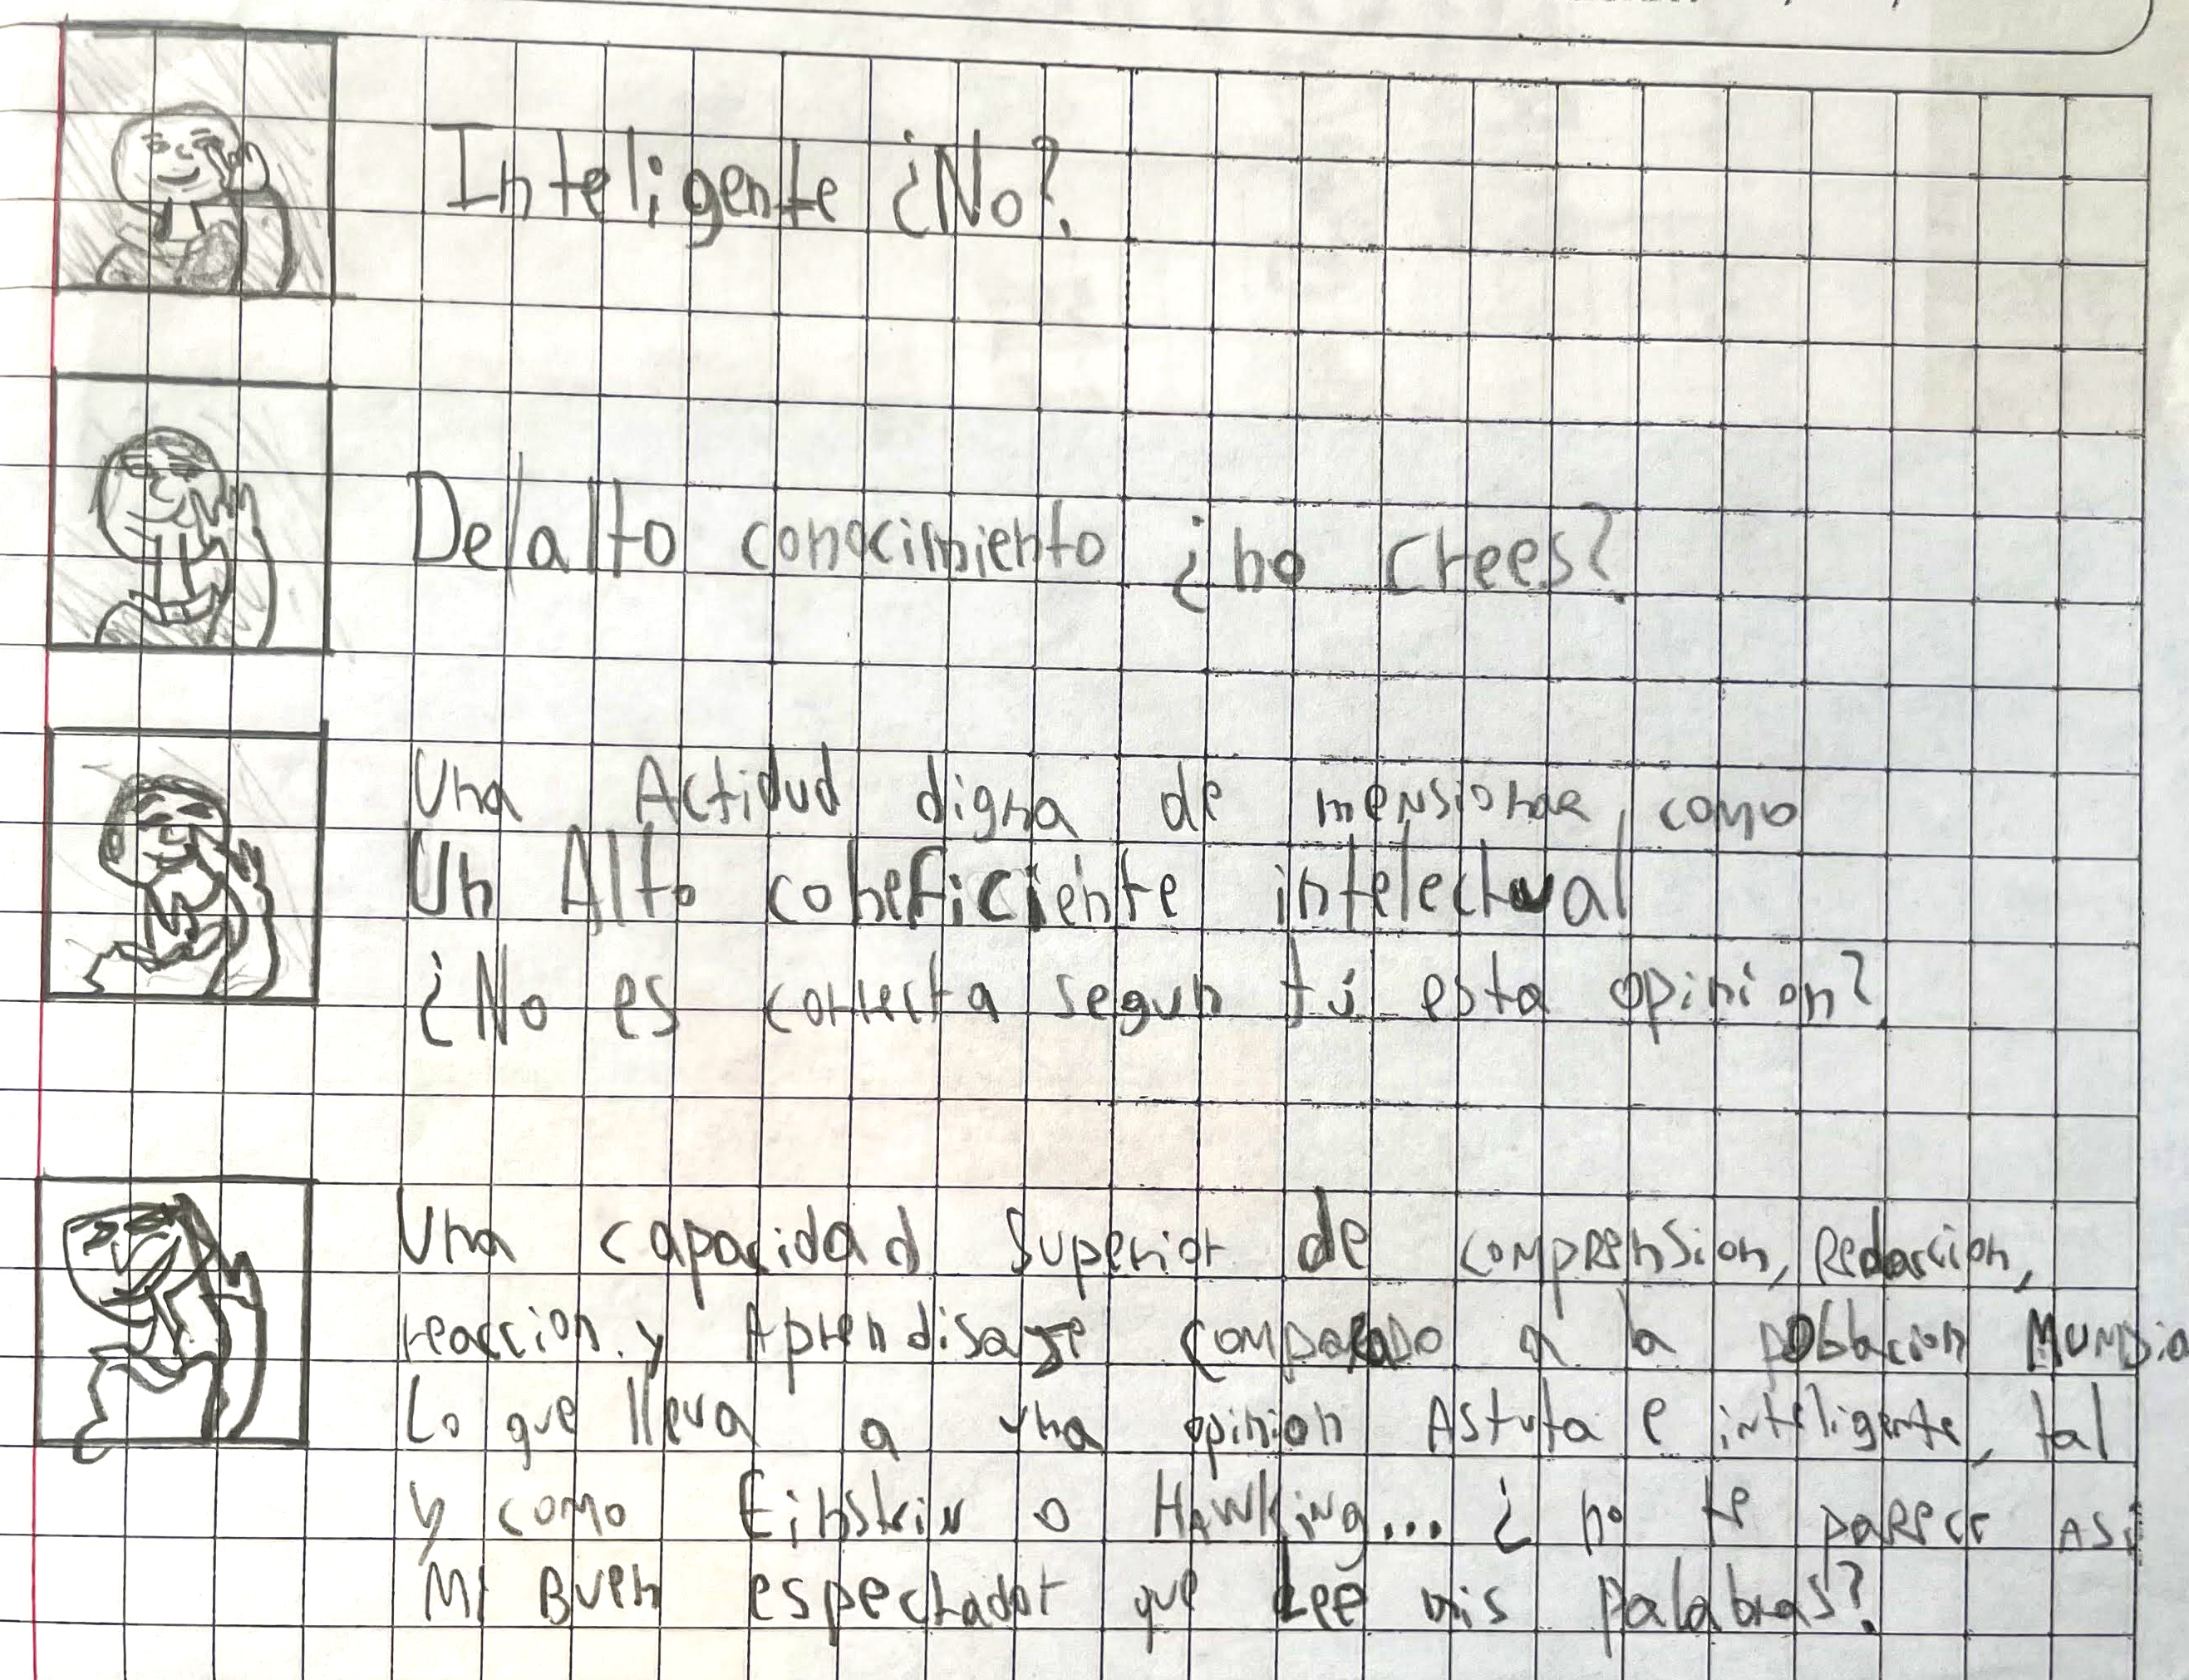 Inteligente ¿No?
De alto conocimiento ¿no crees?
Una Actidud digna de mensionar, como
Un Alto coheficiente intelectual
¿No es correcta segun tú esta opinion?
Una capacidad Superior de comprension, Redaccion,
reaccion y Aprendisaje comparado a la poblacion Mundia
Lo que lleva a una opinion Astuta e inteligente, tal
y como Einstein o Hawking... ¿ no te parece así
Mi Buen espectador que Lee mis palabras?